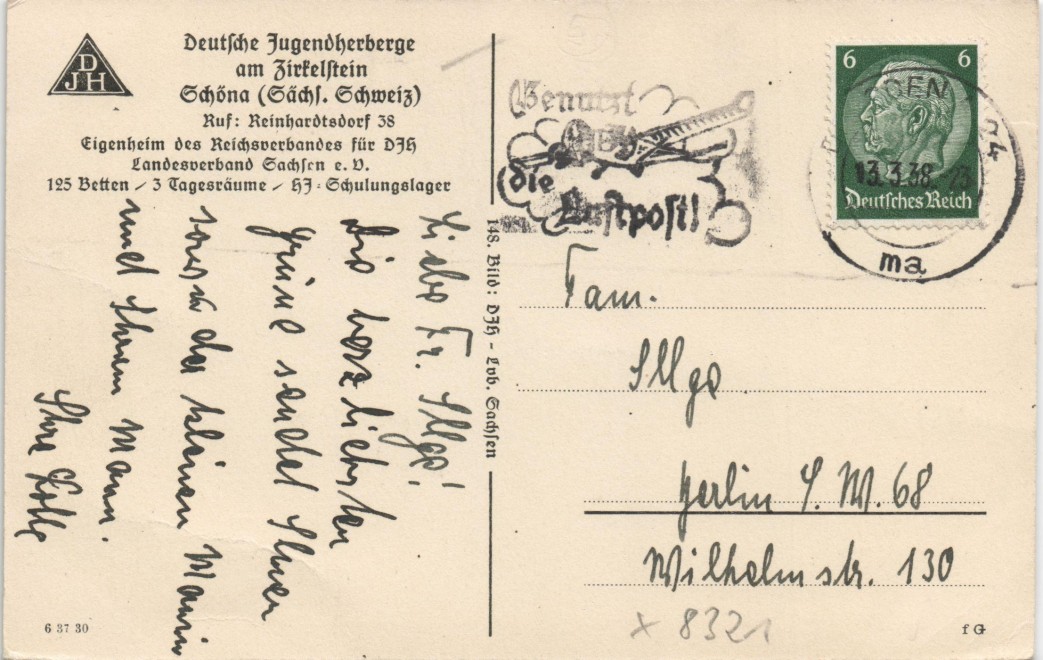 DJH
Deutsche Jugendherberge
am Zirkelstein
Schöna (Sächs. Schweiz)
Ruf: Reinhardtsdorf 38
Eigenheim des Reichsverbandes für DJH
Landesverband Sachsen e. V.
125 Betten / 3 Tagesräume / HJ-Schulungslager
Liebe Fr. Illge!
Die herzlichsten
Grüße sendet Ihnen
sowie der kleinen
und Ihrem Mann.
Ihre
148. Bild: DJH - Lvb. Sachsen
Benutzt
die
Luftpost!
6 6
Deutsches Reich
13.3.38
ma
Fam.
Illge
Berlin S.W. 68
Wilhelmstr. 130
x 8321
6 37 30
f G